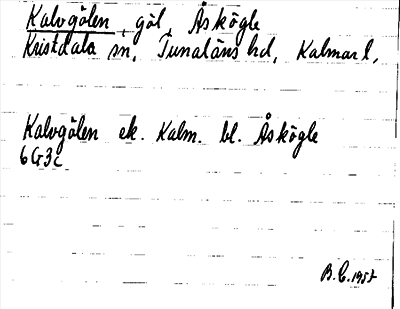 Kalvgölen, göl, Åskögle
Kristdala sn, Tunaläns hd, Kalmar l,
Kalvgölen ek. Kalm. bl. Åskögle
6G3c
B.C. 1957